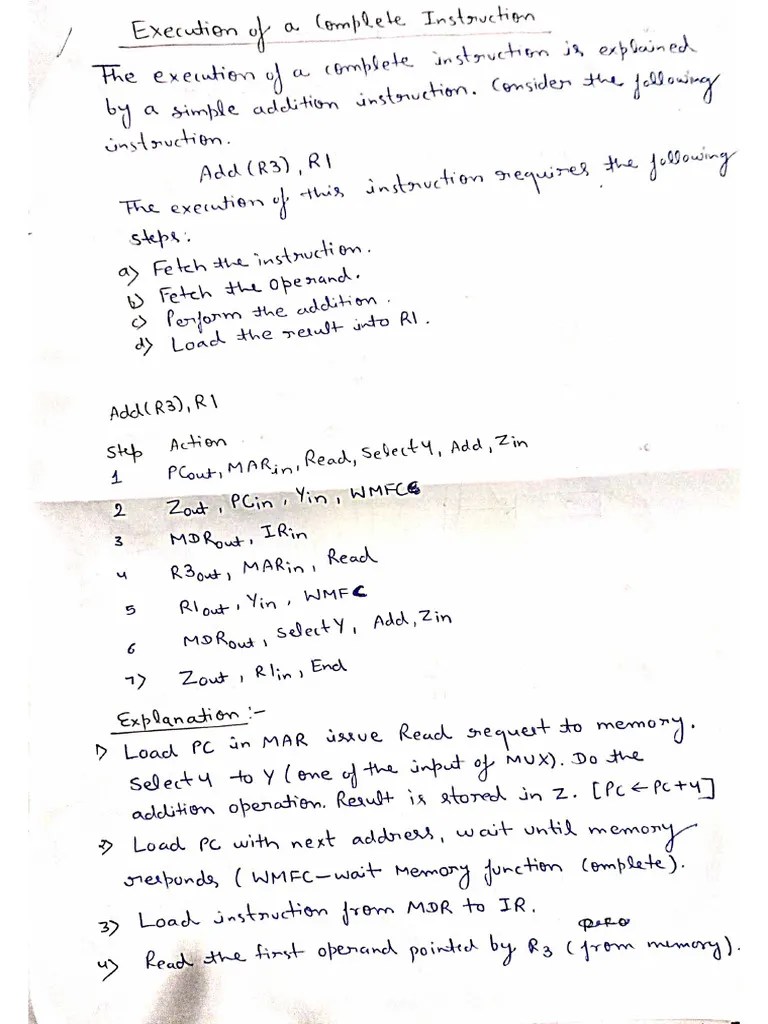 Execution of a Complete Instruction
The execution of a complete instruction is explained
by a simple addition instruction. Consider the following
instruction.
Add (R3), R1
The execution of this instruction requires the following
steps:
a) Fetch the instruction.
b) Fetch the operand.
c) Perform the addition.
d) Load the result into R1.
Add(R3), R1
Step Action
1 PCout, MARin, Read, Select4, Add, Zin
2 Zout, PCin, Yin, WMFC
3 MDRout, IRin
4 R3out, MARin, Read
5 R1out, Yin, WMFC
6 MDRout, SelectY, Add, Zin
7) Zout, R1in, End
Explanation :-
1) Load PC in MAR issue Read request to memory.
Select 4 to Y (one of the input of MUX). Do the
addition operation. Result is stored in Z. [PC ← PC + 4]
2) Load PC with next address, wait until memory
responds (WMFC - wait Memory function complete).
3) Load instruction from MDR to IR.
4) Read the first operand pointed by R3 (from memory).